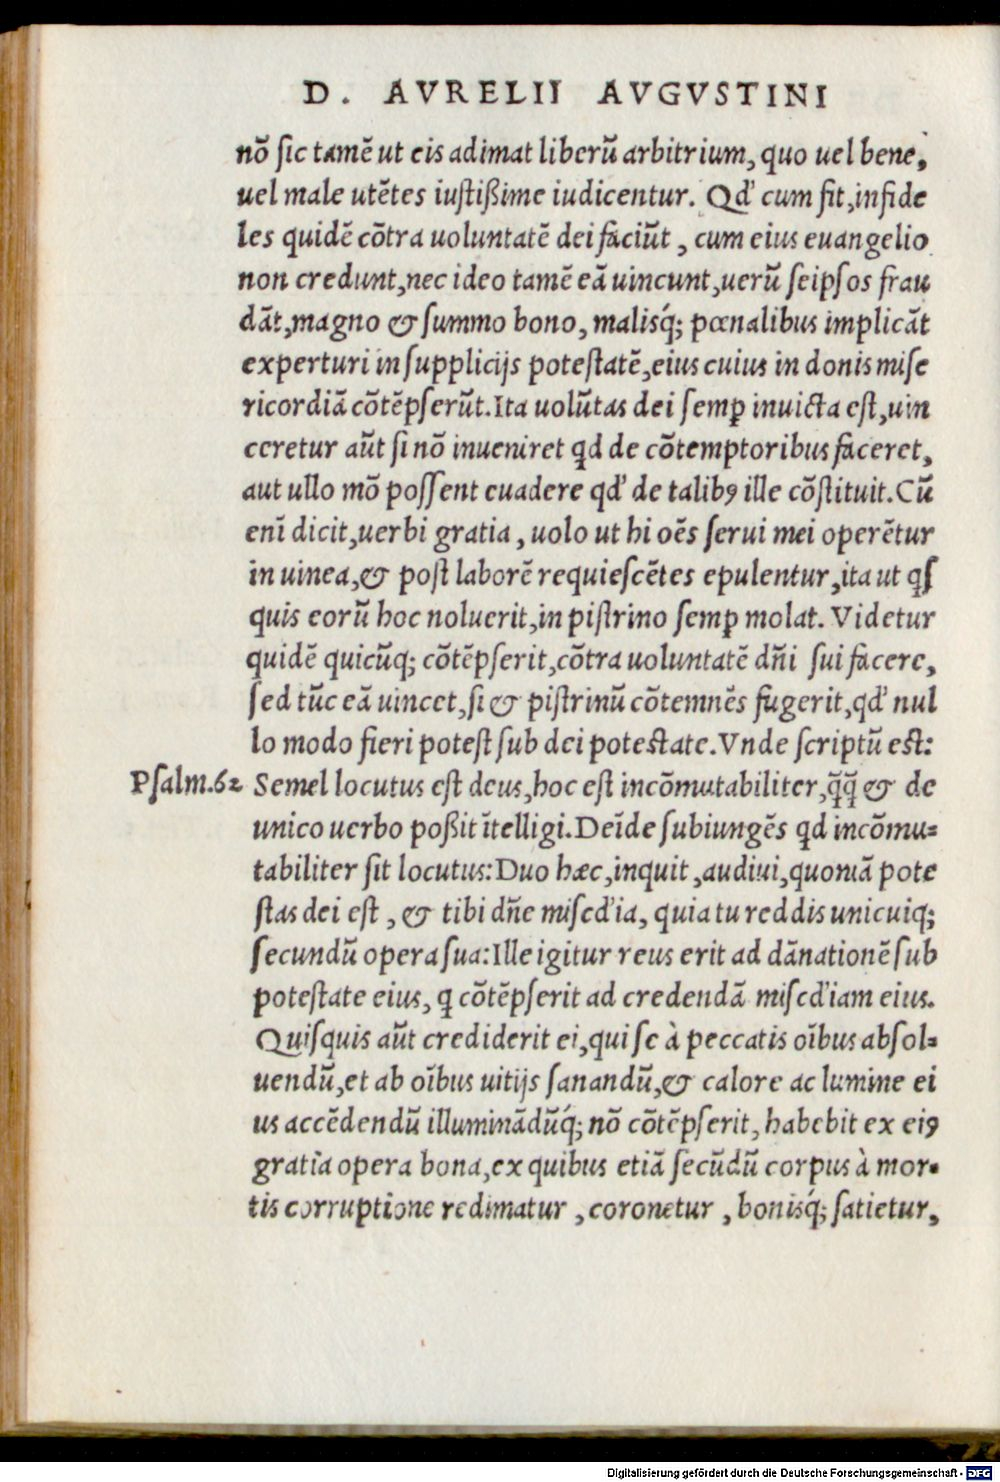 D. AVRELII AVGVSTINI
nō ſic tamē ut eis adimat liberū arbitrium, quo uel bene,
uel male utētes iuſtißime iudicentur. Qđ cum fit, infide
les quidē cōtra uoluntatē dei faciūt, cum eius euangelio
non credunt, nec ideo tamē eā uincunt, uerū ſeipſos frau
dāt, magno & ſummo bono, malisq́; pœnalibus implicāt
experturi in ſupplicijs poteſtatē, eius cuius in donis miſe
ricordiā cōtēpſerūt. Ita uolūtas dei ſemꝑ inuicta eſt, uin
ceretur aūt ſi nō inueniret qd de cōtemptoribus faceret,
aut ullo mō poſſent euadere qđ de talibꝰ ille cōſtituit. Cū
enī dicit, uerbi gratia, uolo ut hi oēs ſerui mei operētur
in uinea, & poſt laborē requieſcētes epulentur, ita ut qſ
quis eorū hoc noluerit, in piſtrino ſemꝑ molat. Videtur
quidē quicūq; cōtēpſerit, cōtra uoluntatē dn̄i ſui facere,
ſed tūc eā uincet, ſi & piſtrinū cōtemnēs fugerit, qđ nul
lo modo fieri poteſt ſub dei poteſtate. Vnde ſcriptū eſt:
Pſalm.62 Semel locutus eſt deus, hoc eſt incōmutabiliter, q̄q̄ & de
unico uerbo poßit ītelligi. Deīde ſubiungēs qd incōmu=
tabiliter ſit locutus: Duo hæc, inquit, audiui, quoniā pote
ſtas dei eſt, & tibi dn̄e miſcđia, quia tu reddis unicuiq;
ſecundū opera ſua: Ille igitur reus erit ad dānationē ſub
poteſtate eius, q cōtēpſerit ad credendā miſcđiam eius.
Quiſquis aūt crediderit ei, qui ſe à peccatis oībus abſol=
uendū, et ab oībus uitijs ſanandū, & calore ac lumine ei
us accēdendū illuminādūq́; nō cōtēpſerit, habebit ex eiꝰ
gratia opera bona, ex quibus etiā ſecūdū corpus à mor=
tis corruptione redimatur, coronetur, bonisq́; ſatietur,
Digitalisierung gefördert durch die Deutsche Forschungsgemeinschaft - DFG